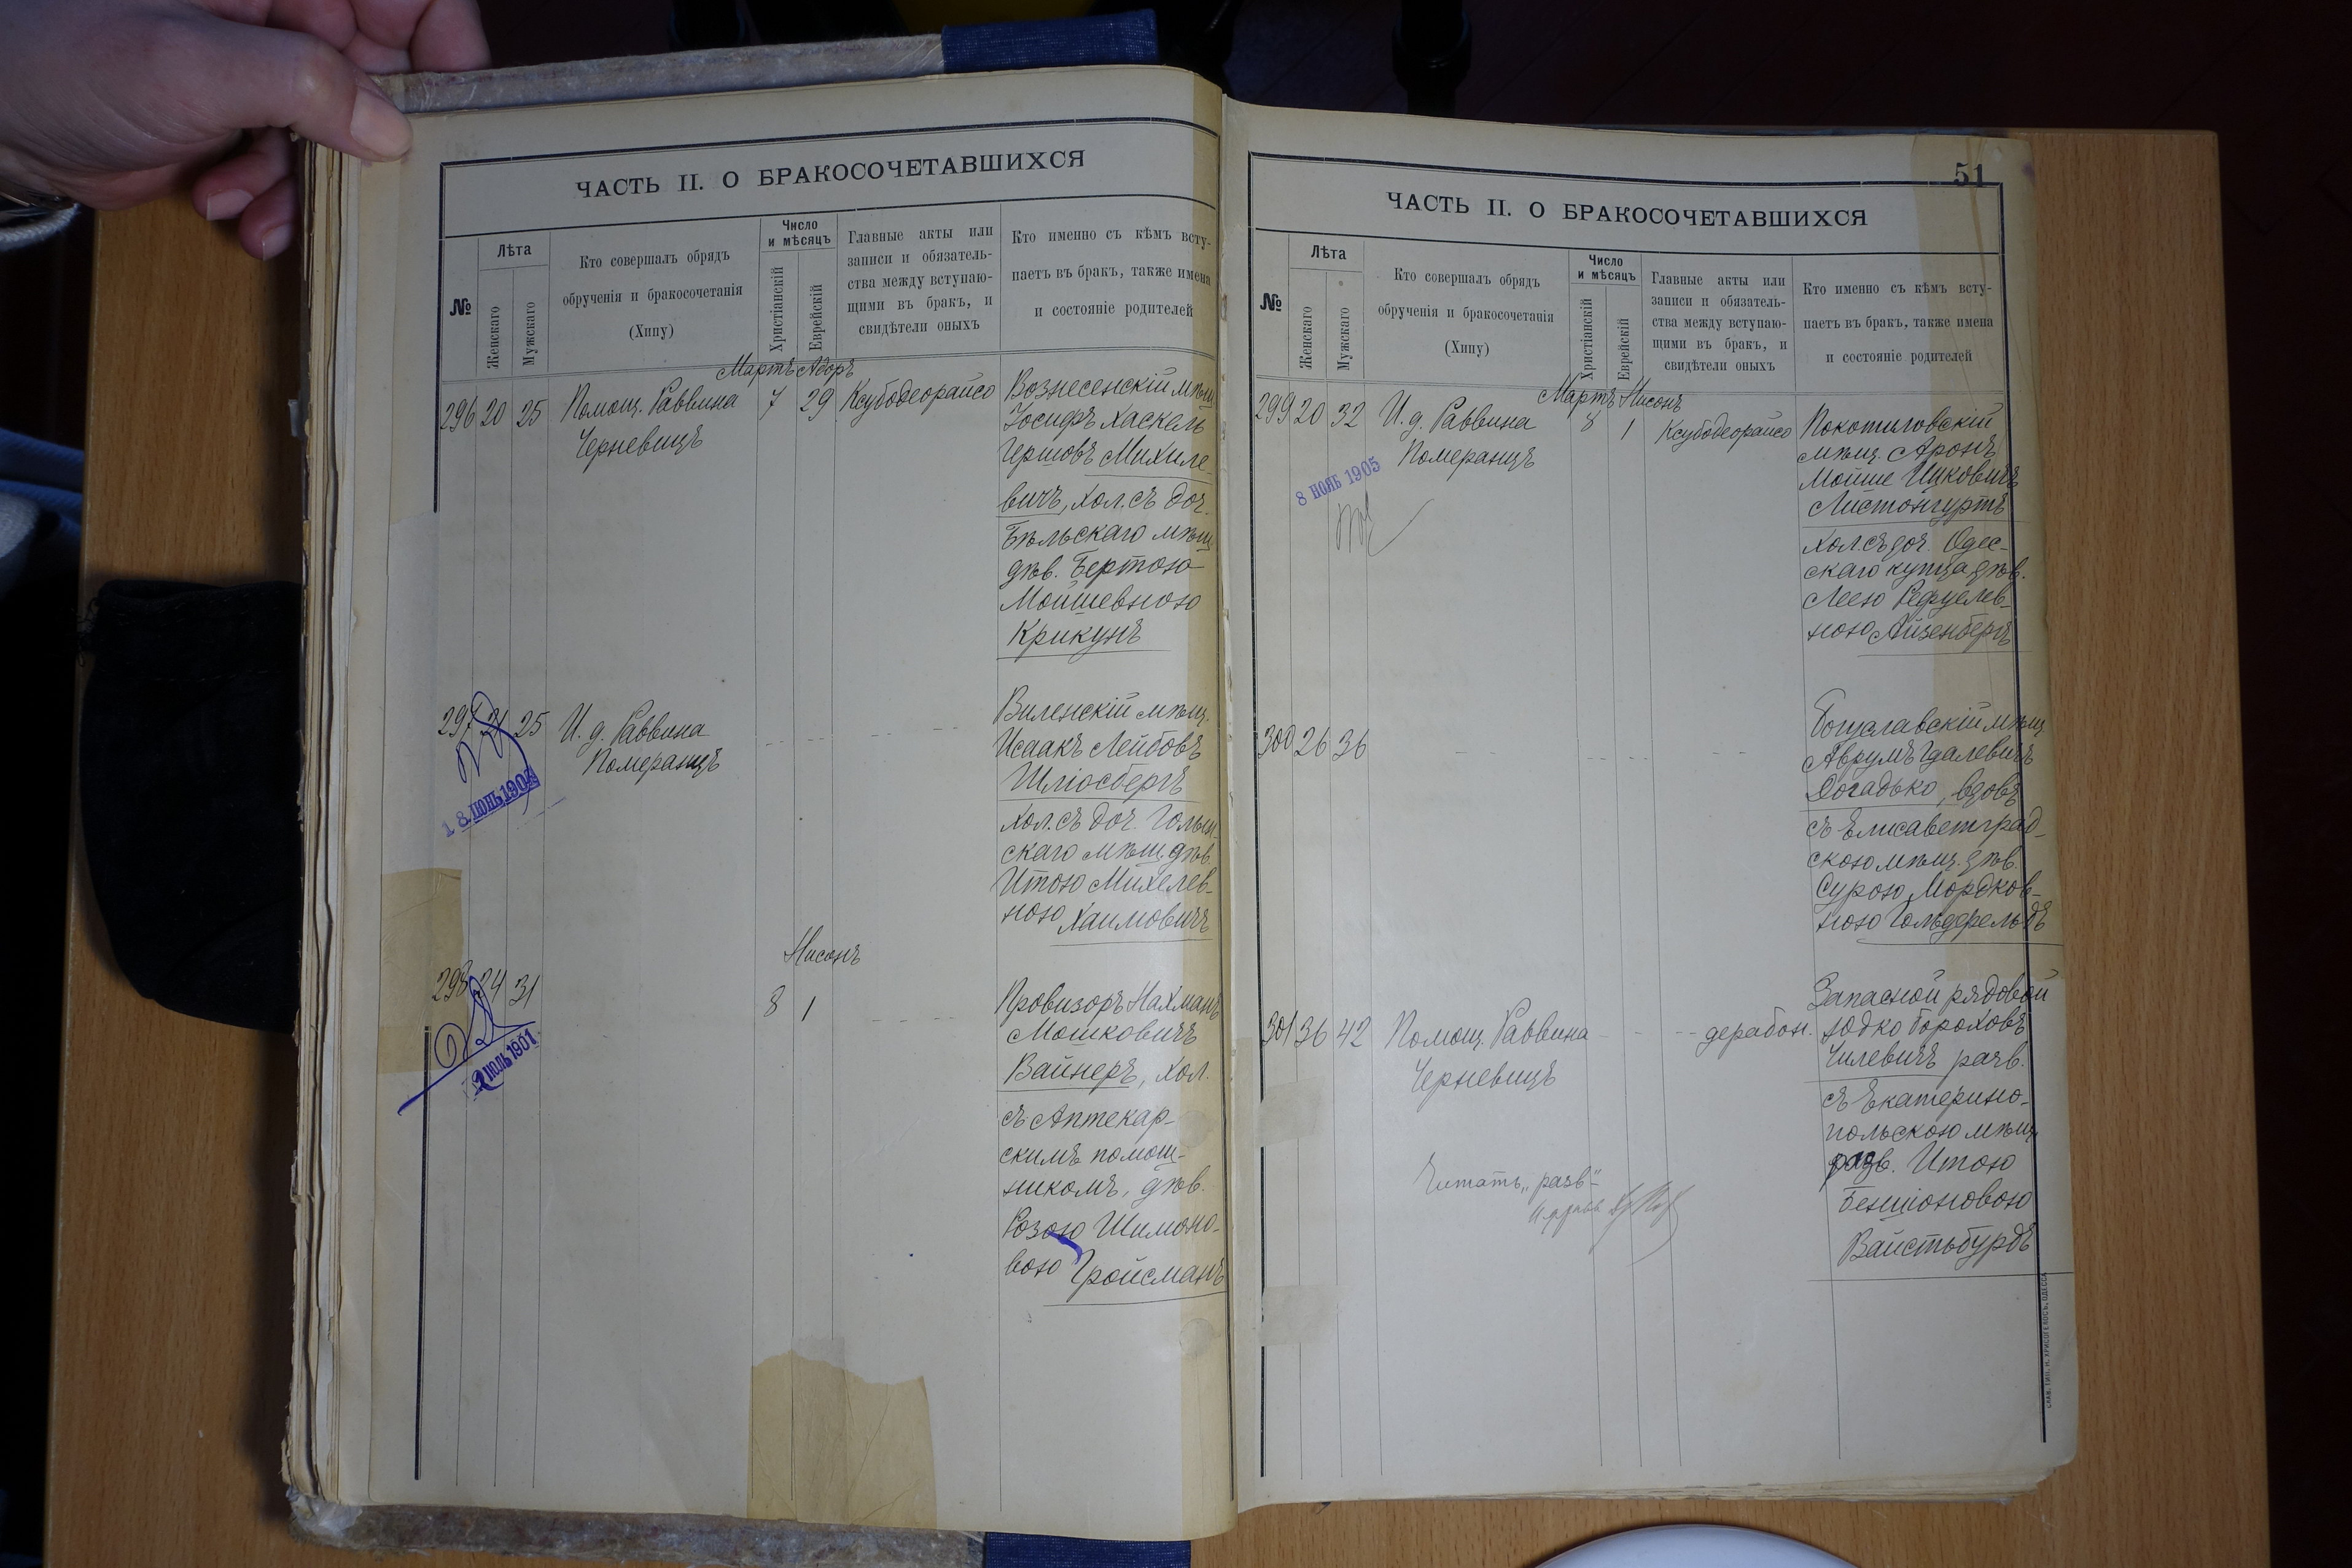 ЧАСТЬ II. О БРАКОСОЧЕТАВШИХСЯ
№
Лѣта
Женскаго
Мужскаго
Кто совершалъ обрядъ
обрученія и бракосочетанія
(Хипу)
Число
и мѣсяцъ
Христіанскій
Еврейскій
Главные акты или
записи и обязатель-
ства между вступаю-
щими въ бракъ, и
свидѣтели оныхъ
Кто именно съ кѣмъ всту-
паетъ въ бракъ, также имена
и состояніе родителей
Мартъ Адоръ
296 20 25 Помощ. Раввина 7 29 Ксубодеорайсо
Черневицъ
Вознесенскій мѣщ
Іосифъ Хаскель
Гершовъ Михиле-
вичъ, хол. съ доч.
Бѣльскаго мѣщ
дѣв. Бертою
Мойшевною
Крикунъ
297 21 25 И. д. Раввина
Померанцъ
Виленскій мѣщ.
Исаакъ Лейбовъ
Шліосбергъ
хол. съ доч.
скаго мѣщ. дѣв.
Итою Михелев-
ною Хаимовичъ
18 ИЮНЬ
Нисонъ
298 24 31 8 1
Провизоръ Нахманъ
Мошковичъ
Вайнеръ, хол.
съ Аптекар-
скимъ помощ-
никомъ, дѣв.
Розою Шимоно-
вою Гройсманъ
ИЮЛЬ 1901
51
ЧАСТЬ II. О БРАКОСОЧЕТАВШИХСЯ
№
Лѣта
Женскаго
Мужскаго
Кто совершалъ обрядъ
обрученія и бракосочетанія
(Хипу)
Число
и мѣсяцъ
Христіанскій
Еврейскій
Главные акты или
записи и обязатель-
ства между вступаю-
щими въ бракъ, и
свидѣтели оныхъ
Кто именно съ кѣмъ всту-
паетъ въ бракъ, также имена
и состояніе родителей
Мартъ Нисонъ
299 20 32 И. д. Раввина 8 1 Ксубодеорайсо
Померанцъ
8 НОЯБ 1905
Покотиловскій
мѣщ. Аронъ
Мойше Ицковичъ
Листонгуртъ
хол. съ доч. Одес-
скаго купца дѣв.
Леею Рефуелев-
ною Айзенбергъ
300 26 36
Богуславскій мѣщ
Аврумъ Гдалевичъ
Догадько, вдовъ
съ Елисаветград-
скою мѣщ. дѣв.
Сурою Мордков-
ною Гольдфельдъ
301 36 42 Помощ. Раввина дерабон.
Черневицъ
Запасной рядовой
Юдко Бороховъ
Чилевичъ разв.
съ Екатерино-
польскою мѣщ
разв. Итою
Бенціоновою
Вайстьбурдъ
Читать „разв“
СЛАВ. ТИП. Н. ХРИСОГЕЛОСЪ, ОДЕССА